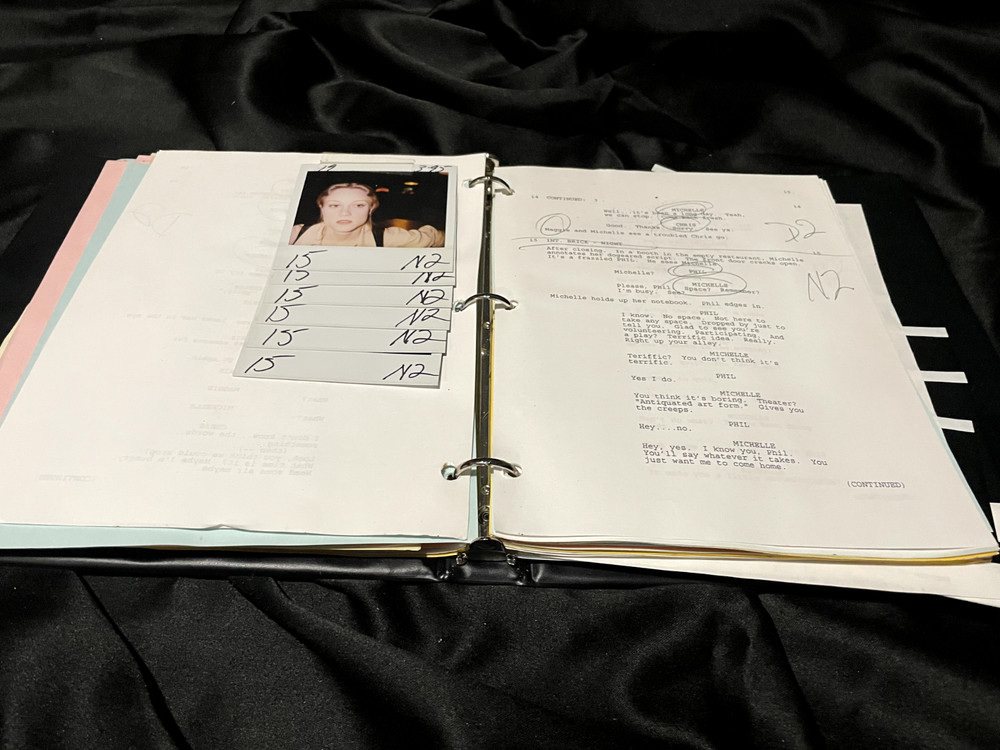 19 3-95
15 N2
15 N2
15 N2
15 N2
15 N2
15 N2
15.
14 CONTINUED: 14
MICHELLE
Well.. it's been a long day. Yeah.
we can stop.
CHRIS
Good. Thanks. Sorry. See ya.
Maggie and Michelle see a troubled Chris go.
D2
15 INT. BRICK - NIGHT 15
After closing. In a booth in the empty restaurant, Michelle
annotates her dogeared script. The front door cracks open.
It's a frazzled PHIL. He sees Michelle.
N2
PHIL
Michelle?
MICHELLE
Please, Phil. Space? Remember?
I'm busy. See?
Michelle holds up her notebook. Phil edges in.
PHIL
I know. No space. Not here to
take any space. Dropped by just to
tell you. Glad to see you're
volunteering. Participating. And
a play? Terrific idea. Really.
Right up your alley.
MICHELLE
Teriffic? You don't think it's
terrific.
PHIL
Yes I do.
MICHELLE
You think it's boring. Theater?
"Antiquated art form." Gives you
the creeps.
PHIL
Hey....no.
MICHELLE
Hey, yes. I know you, Phil.
You'll say whatever it takes. You
just want me to come home.
(CONTINUED)